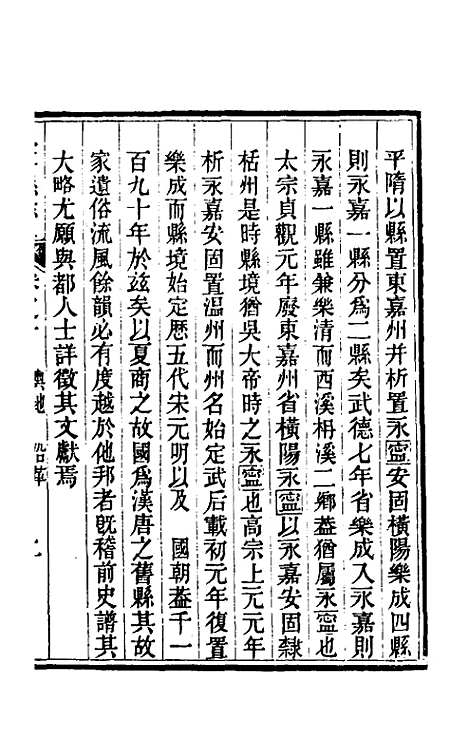 平隋以縣置東嘉州并析置永寧安固橫陽樂成四縣
則永嘉一縣分爲二縣矣武德七年省樂成入永嘉則
永嘉一縣雖兼樂清而西溪枬溪二鄉葢猶屬永寧也
太宗貞觀元年廢東嘉州省橫陽永寧以永嘉安固隸
栝州是時縣境猶吳大帝時之永寧也高宗上元元年
析永嘉安固置温州而州名始定武后載初元年復置
樂成而縣境始定歷五代宋元明以及　國朝葢千一
百九十年於兹矣以夏商之故國爲漢唐之舊縣其故
家遺俗流風餘韻必有度越於他邦者旣稽前史譜其
大略尤願與都人士詳徵其文獻焉
輿地　沿革